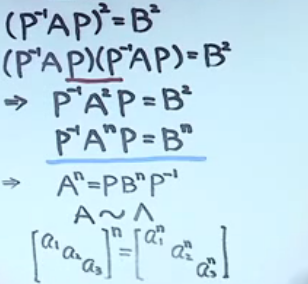 (P⁻¹AP)²=B²
(P⁻¹AP)(P⁻¹AP)=B²
⇒ P⁻¹A²P=B²
P⁻¹AⁿP=Bⁿ
⇒ Aⁿ=PBⁿP⁻¹
A∼Λ
[a₁ a₂ a₃]ⁿ=[a₁ⁿ a₂ⁿ a₃ⁿ]